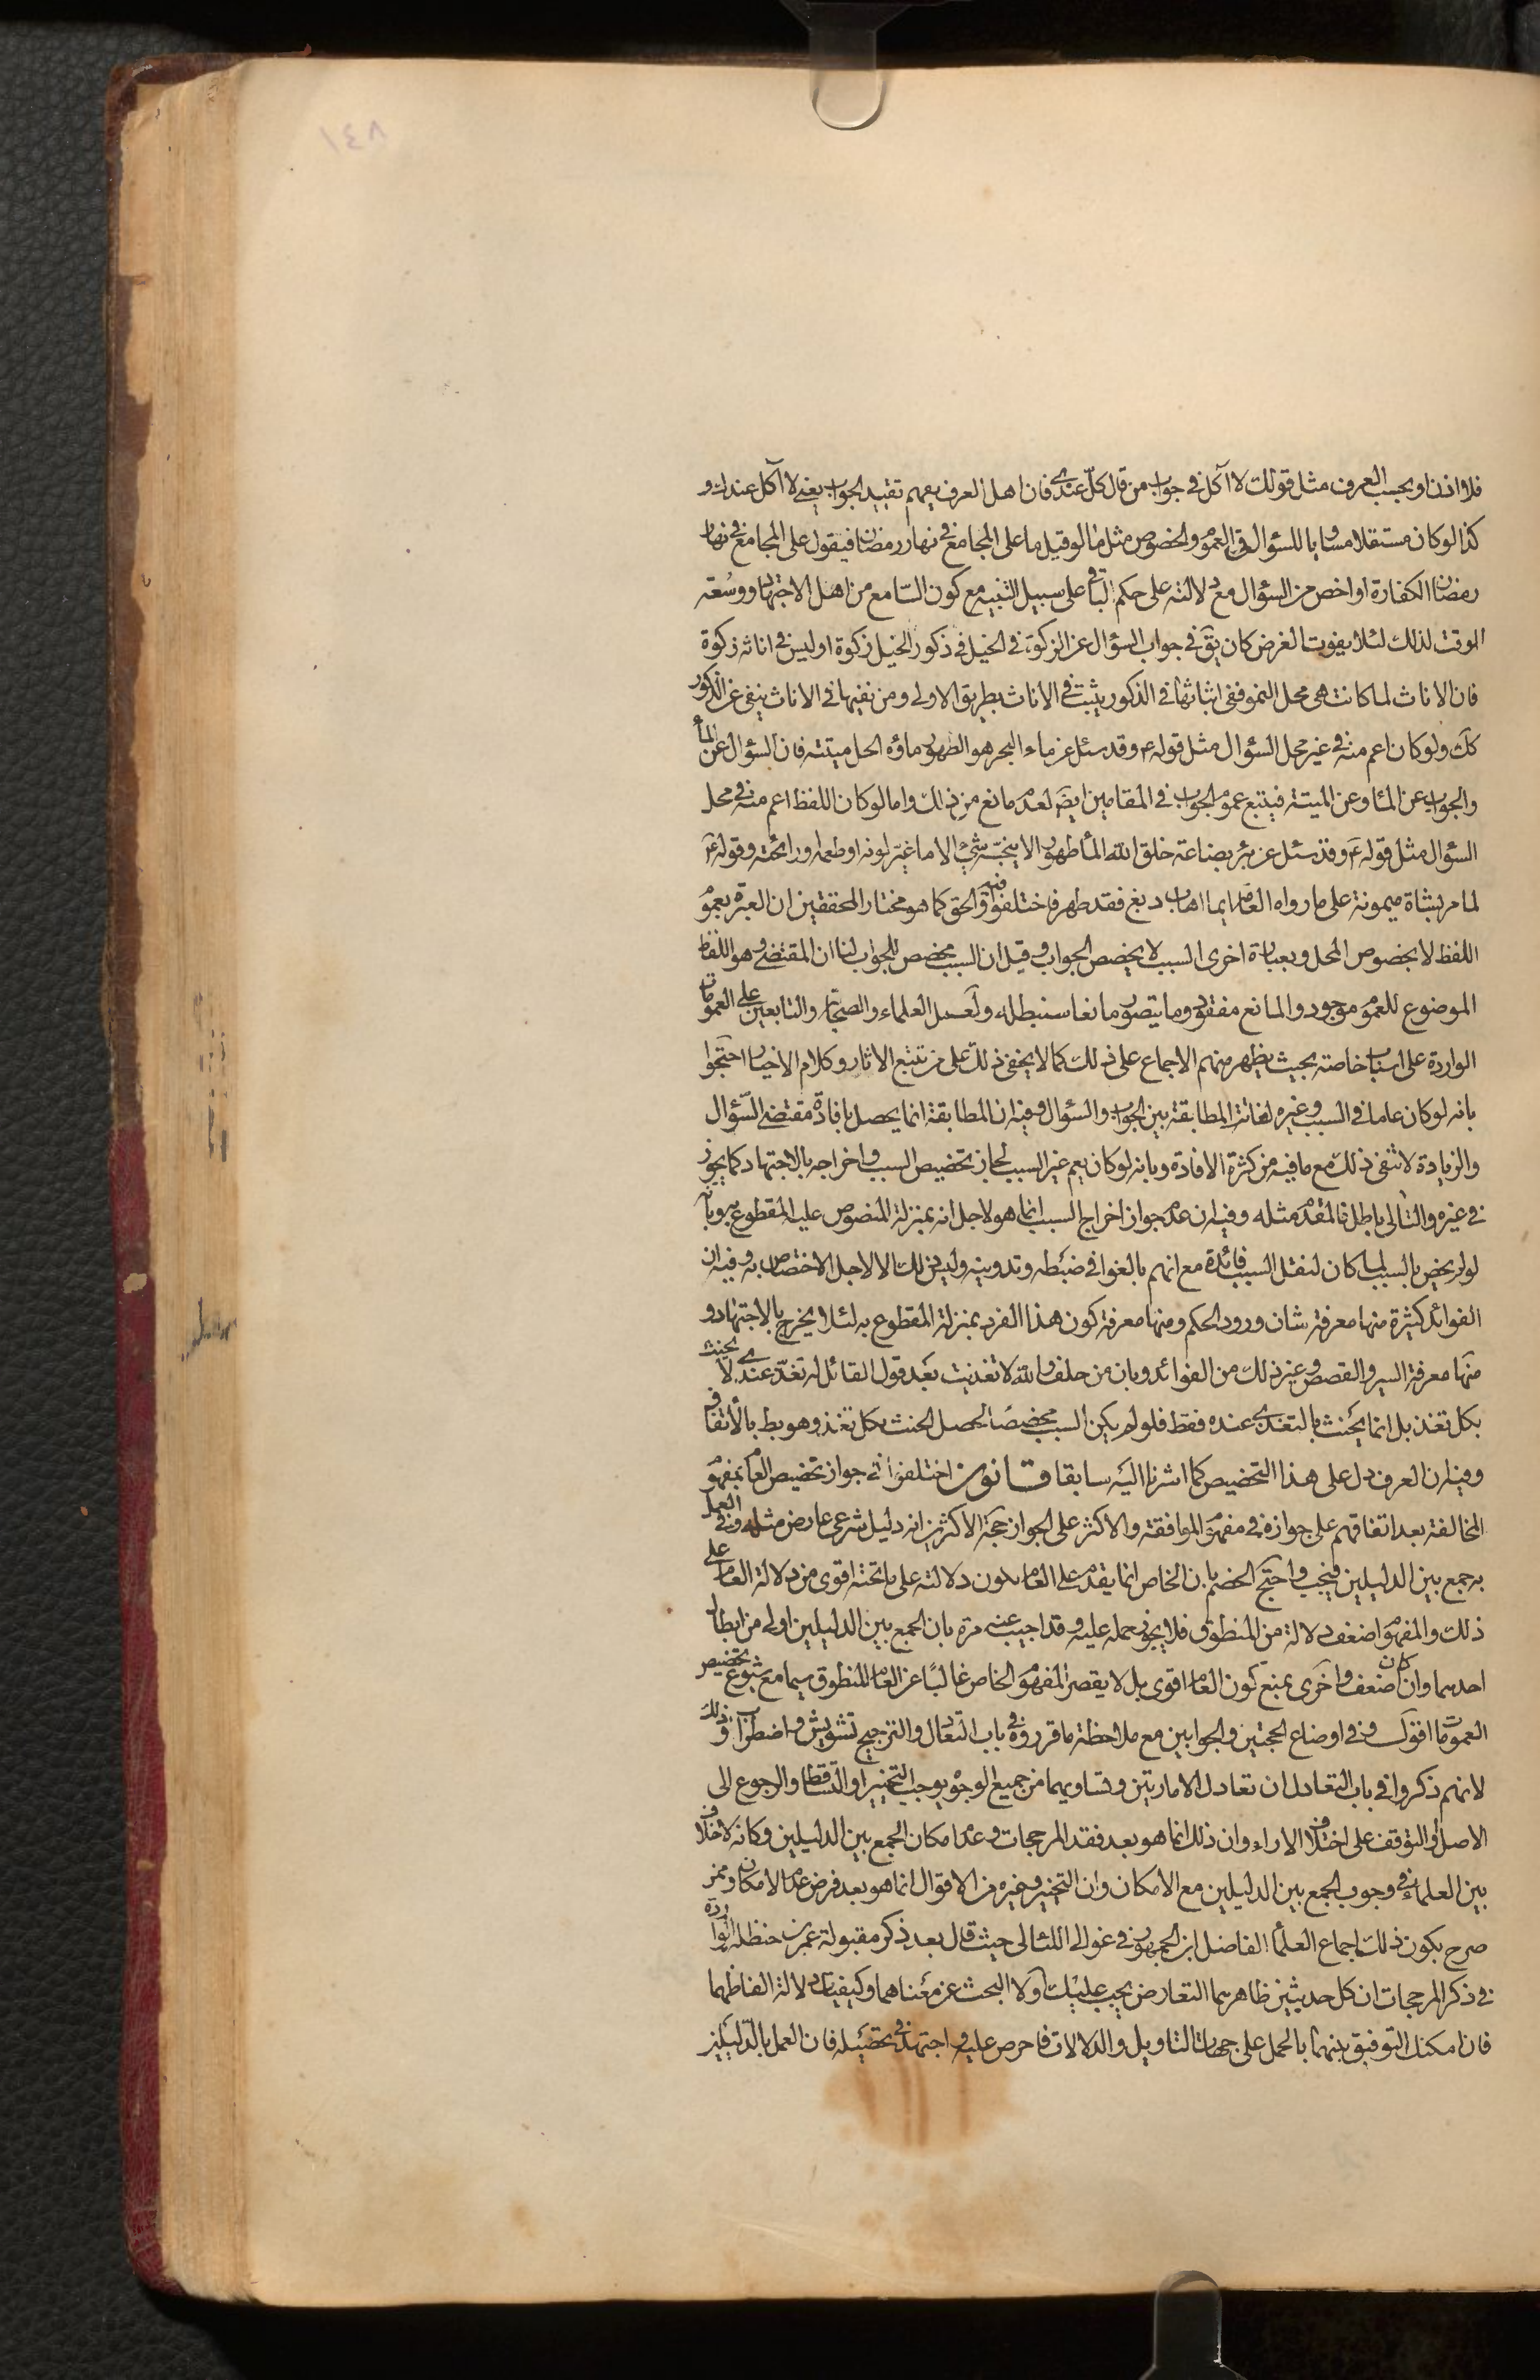 ١٤٨
فلا اذن او بحسب العرف مثل قولك لا آكل في جواب من قال كل عندي فان اهل العرف يفهم تقييد الجواب يعني لا آكل عندك و
كذا لو كان مستقلا مساويا للسؤال في العموم والخصوص مثل ما لو قيل ما على المجامع في نهار رمضان فيقول على المجامع في نهار
رمضان الكفارة او اخص من السؤال مع دلالته على حكم الباقي على سبيل التنبيه مع كون السامع من اهل الاجتهاد ووسعة
الوقت لذلك لئلا يفوت الغرض كان يق في جواب السؤال عن الزكوة في الخيل في ذكور الخيل زكوة او ليس في اناثه زكوة
فان الاناث لما كانت هى محل النمو ففى اثباتها في الذكور يثبت في الاناث بطريق الاولى ومن نفيها في الاناث ينفى عن الذكور
كك ولو كان اعم منه في غير محل السؤال مثل قوله ع وقد سئل عن ماء البحر هو الطهور ماؤه الحل ميتته فان السؤال عن الماء
والجواب عن الماء وعن الميتة فيتبع عموم الجواب في المقامين ايضا لعدم مانع من ذلك واما لو كان اللفظ اعم منه في محل
السؤال مثل قوله ع وقد سئل عن بئر بضاعة خلق الله الماء طهورا لا ينجسه شئ الا ما غير لونه او طعمه او رائحته وقوله ع
لما مر بشاة ميمونة على ما رواه العامة ايما اهاب دبغ فقد طهر فاختلفوا فيه والحق كما هو مختار المحققين ان العبرة بعموم
اللفظ لا بخصوص المحل وبعبارة اخرى السبب لا يخصص الجواب وقيل ان السبب مخصص للجواب لنا ان المقتضى وهو اللفظ
الموضوع للعموم موجود والمانع مفقود وما يتصور مانعا سنبطله ولعمل العلماء والصحابة والتابعين على العمومات
الواردة على اسباب خاصة بحيث يظهر منهم الاجماع على ذلك كما لا يخفى ذلك على من تتبع الاثار وكلام الاخيار احتجوا
بانه لو كان عاما في السبب وغيره لفاتت المطابقة بين الجواب والسؤال وفيه ان المطابقة انما يحصل بافادة مقتضى السؤال
والزيادة لا تنفى ذلك مع ما فيه من كثرة الافادة وبانه لو كان يعم غير السبب لجاز تخصيص السبب واخراجه بالاجتهاد كما يجوز
في غيره والتالى باطل فالمقدم مثله وفيه ان عدم جواز اخراج السبب انما هو لاجل انه بمنزلة المنصوص عليه المقطوع به وبانه
لو لم يخص بالسبب لما كان لنقل السبب فائدة مع انهم بالغوا في ضبطه وتدوينه وليس ذلك الا لاجل الاختصاص به وفيه ان
الفوائد كثيرة منها معرفة شان ورود الحكم ومنها معرفة كون هذا الفرد بمنزلة المقطوع به لئلا يخرج بالاجتهاد و
منها معرفة السير والقصص وغير ذلك من الفوائد وبان من حلف والله لا تغذيت بعد قول القائل له تغد عندي لا يحنث
بكل تغذ بل انما يحنث بالتغدي عنده فقط فلو لم يكن السبب مخصصا لحصل الحنث بكل تغذ وهو بط بالاتفاق
وفيه ان العرف دل على هذا التخصيص كما اشرنا اليه سابقا قانون اختلفوا في جواز تخصيص العام بمفهوم
المخالفة بعد اتفاقهم على جوازه في مفهوم الموافقة والاكثر على الجواز حجة الاكثرين انه دليل شرعى عارض مثله وفي العمل
به جمع بين الدليلين فيجب واحتج الخصم بان الخاص انما يقدم على العام لكون دلالته على ما تحته اقوى من دلالة العام على
ذلك والمفهوم اضعف دلالة من المنطوق فلا يجوز حمله عليه وقد اجيب عنه مرة بان الجمع بين الدليلين اولى من ابطال
احدهما وان كان اضعف واخرى بمنع كون العام اقوى بل لا يقصر المفهوم الخاص غالبا عن العام المنطوق سيما مع شيوع تخصيص
العمومات اقول وفي اوضاع الحجتين والجوابين مع ملاحظة ما قرروه في باب التعادل والترجيح تشويش واضطراب وذلك
لانهم ذكروا في باب التعادل ان تعادل الامارتين وتساويهما من جميع الوجوه يوجب التخيير او التساقط والرجوع الى
الاصل او التوقف على اختلاف الاراء وان ذلك انما هو بعد فقد المرجحات وعدم امكان الجمع بين الدليلين وكانه لا خلاف
بين العلماء في وجوب الجمع بين الدليلين مع الامكان وان التخيير وغيره من الاقوال انما هو بعد فرض عدم الامكان وممن
صرح بكون ذلك اجماع العلماء الفاضل ابن الجمهور في غوالى اللئالى حيث قال بعد ذكر مقبولة عمر بن حنظله الواردة
في ذكر المرجحات ان كل حديثين ظاهرهما التعارض يجب عليك اولا البحث عن معناهما وكيفيات دلالة الفاظهما
فان امكنك التوفيق بينهما بالحمل على جهات التاويل والدلالات فاحرص عليه واجتهد في تحصيله فان العمل بالدليلين